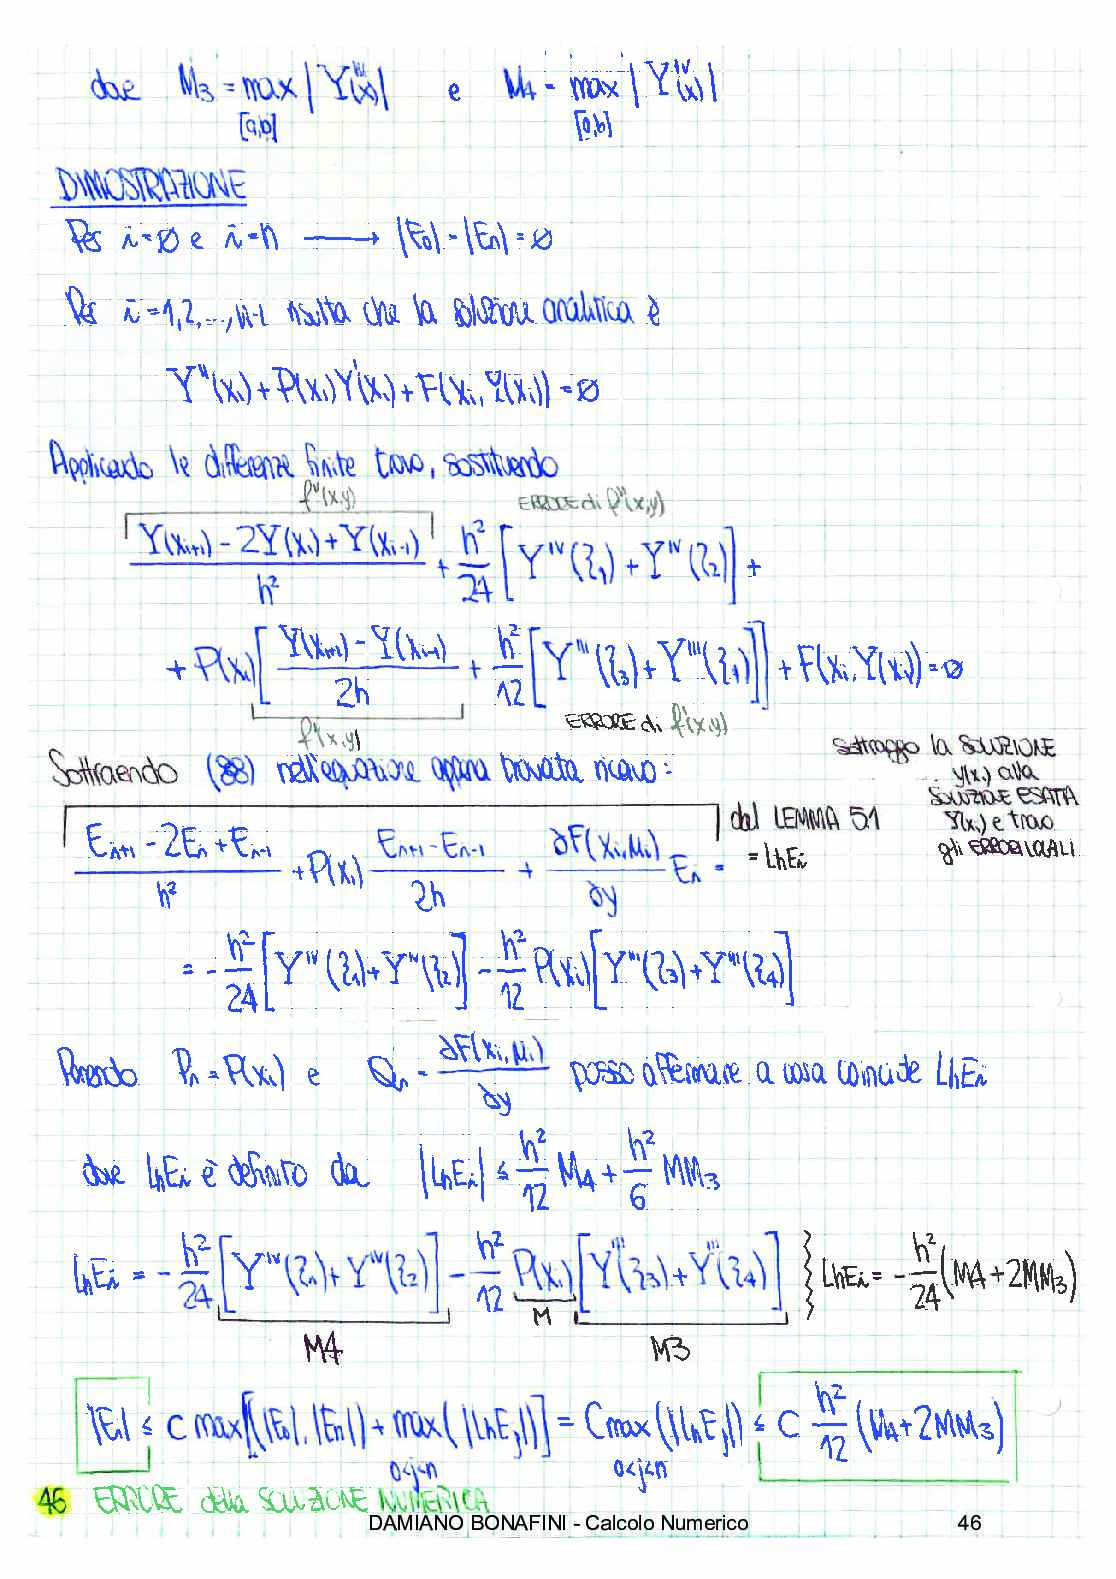 dove M₃ = max |Y'''(x)| e M₄ = max |Y^IV(x)|
[a,b] [a,b]
DIMOSTRAZIONE
Per i=Ø e i=n ⟶ |E₀| = |Eₙ| = Ø
Per i=1,2,...,n-1 risulta che la soluzione analitica è
Y''(xᵢ) + P(xᵢ)Y'(xᵢ) + F(xᵢ, Y(xᵢ)) = Ø
Applicando le differenze finite trovo, sostituendo
f''(x,y) ERRORE di f''(x,y)
Y(xᵢ₊₁) - 2Y(xᵢ) + Y(xᵢ₋₁) / h² + h²/24 [Y^IV(ξ₁) + Y^IV(ξ₂)] +
+ P(xᵢ) [Y(xᵢ₊₁) - Y(xᵢ₋₁) / 2h + h²/12 [Y'''(ξ₃) + Y'''(ξ₄)]] + F(xᵢ, Y(xᵢ)) = Ø
f'(x,y) ERRORE di f'(x,y)
Sottraendo (88) nell'equazione appena trovata ricavo:
Sottraggo la SOLUZIONE
y(xᵢ) alla
SOLUZIONE ESATTA
Y(xᵢ) e trovo
gli ERRORI LOCALI
Eᵢ₊₁ - 2Eᵢ + Eᵢ₋₁ / h² + P(xᵢ) Eᵢ₊₁ - Eᵢ₋₁ / 2h + ∂F(xᵢ, μᵢ)/∂y Eᵢ =
dal LEMMA 5.1
= LhEᵢ
= - h²/24 [Y^IV(ξ₁) + Y^IV(ξ₂)] - h²/12 P(xᵢ) [Y'''(ξ₃) + Y'''(ξ₄)]
Ponendo Pᵢ = P(xᵢ) e Qᵢ = ∂F(xᵢ, μᵢ)/∂y posso affermare a cosa coincide LhEᵢ
dove LhEᵢ è definito da |LhEᵢ| ≤ h²/12 M₄ + h²/6 MM₃
LhEᵢ = - h²/24 [Y^IV(ξ₁) + Y^IV(ξ₂)] - h²/12 P(xᵢ) [Y'''(ξ₃) + Y'''(ξ₄)] } LhEᵢ = - h²/24 (M4 + 2MM₃)
M4 M M3
|Eᵢ| ≤ C max[(|E₀|, |Eₙ|) + max(|LhEⱼ|)] = C max(|LhEⱼ|) ≤ C h²/12 (M₄ + 2MM₃)
0<j<n 0<j<n
46 ERRORE della SOLUZIONE NUMERICA
DAMIANO BONAFINI - Calcolo Numerico 46